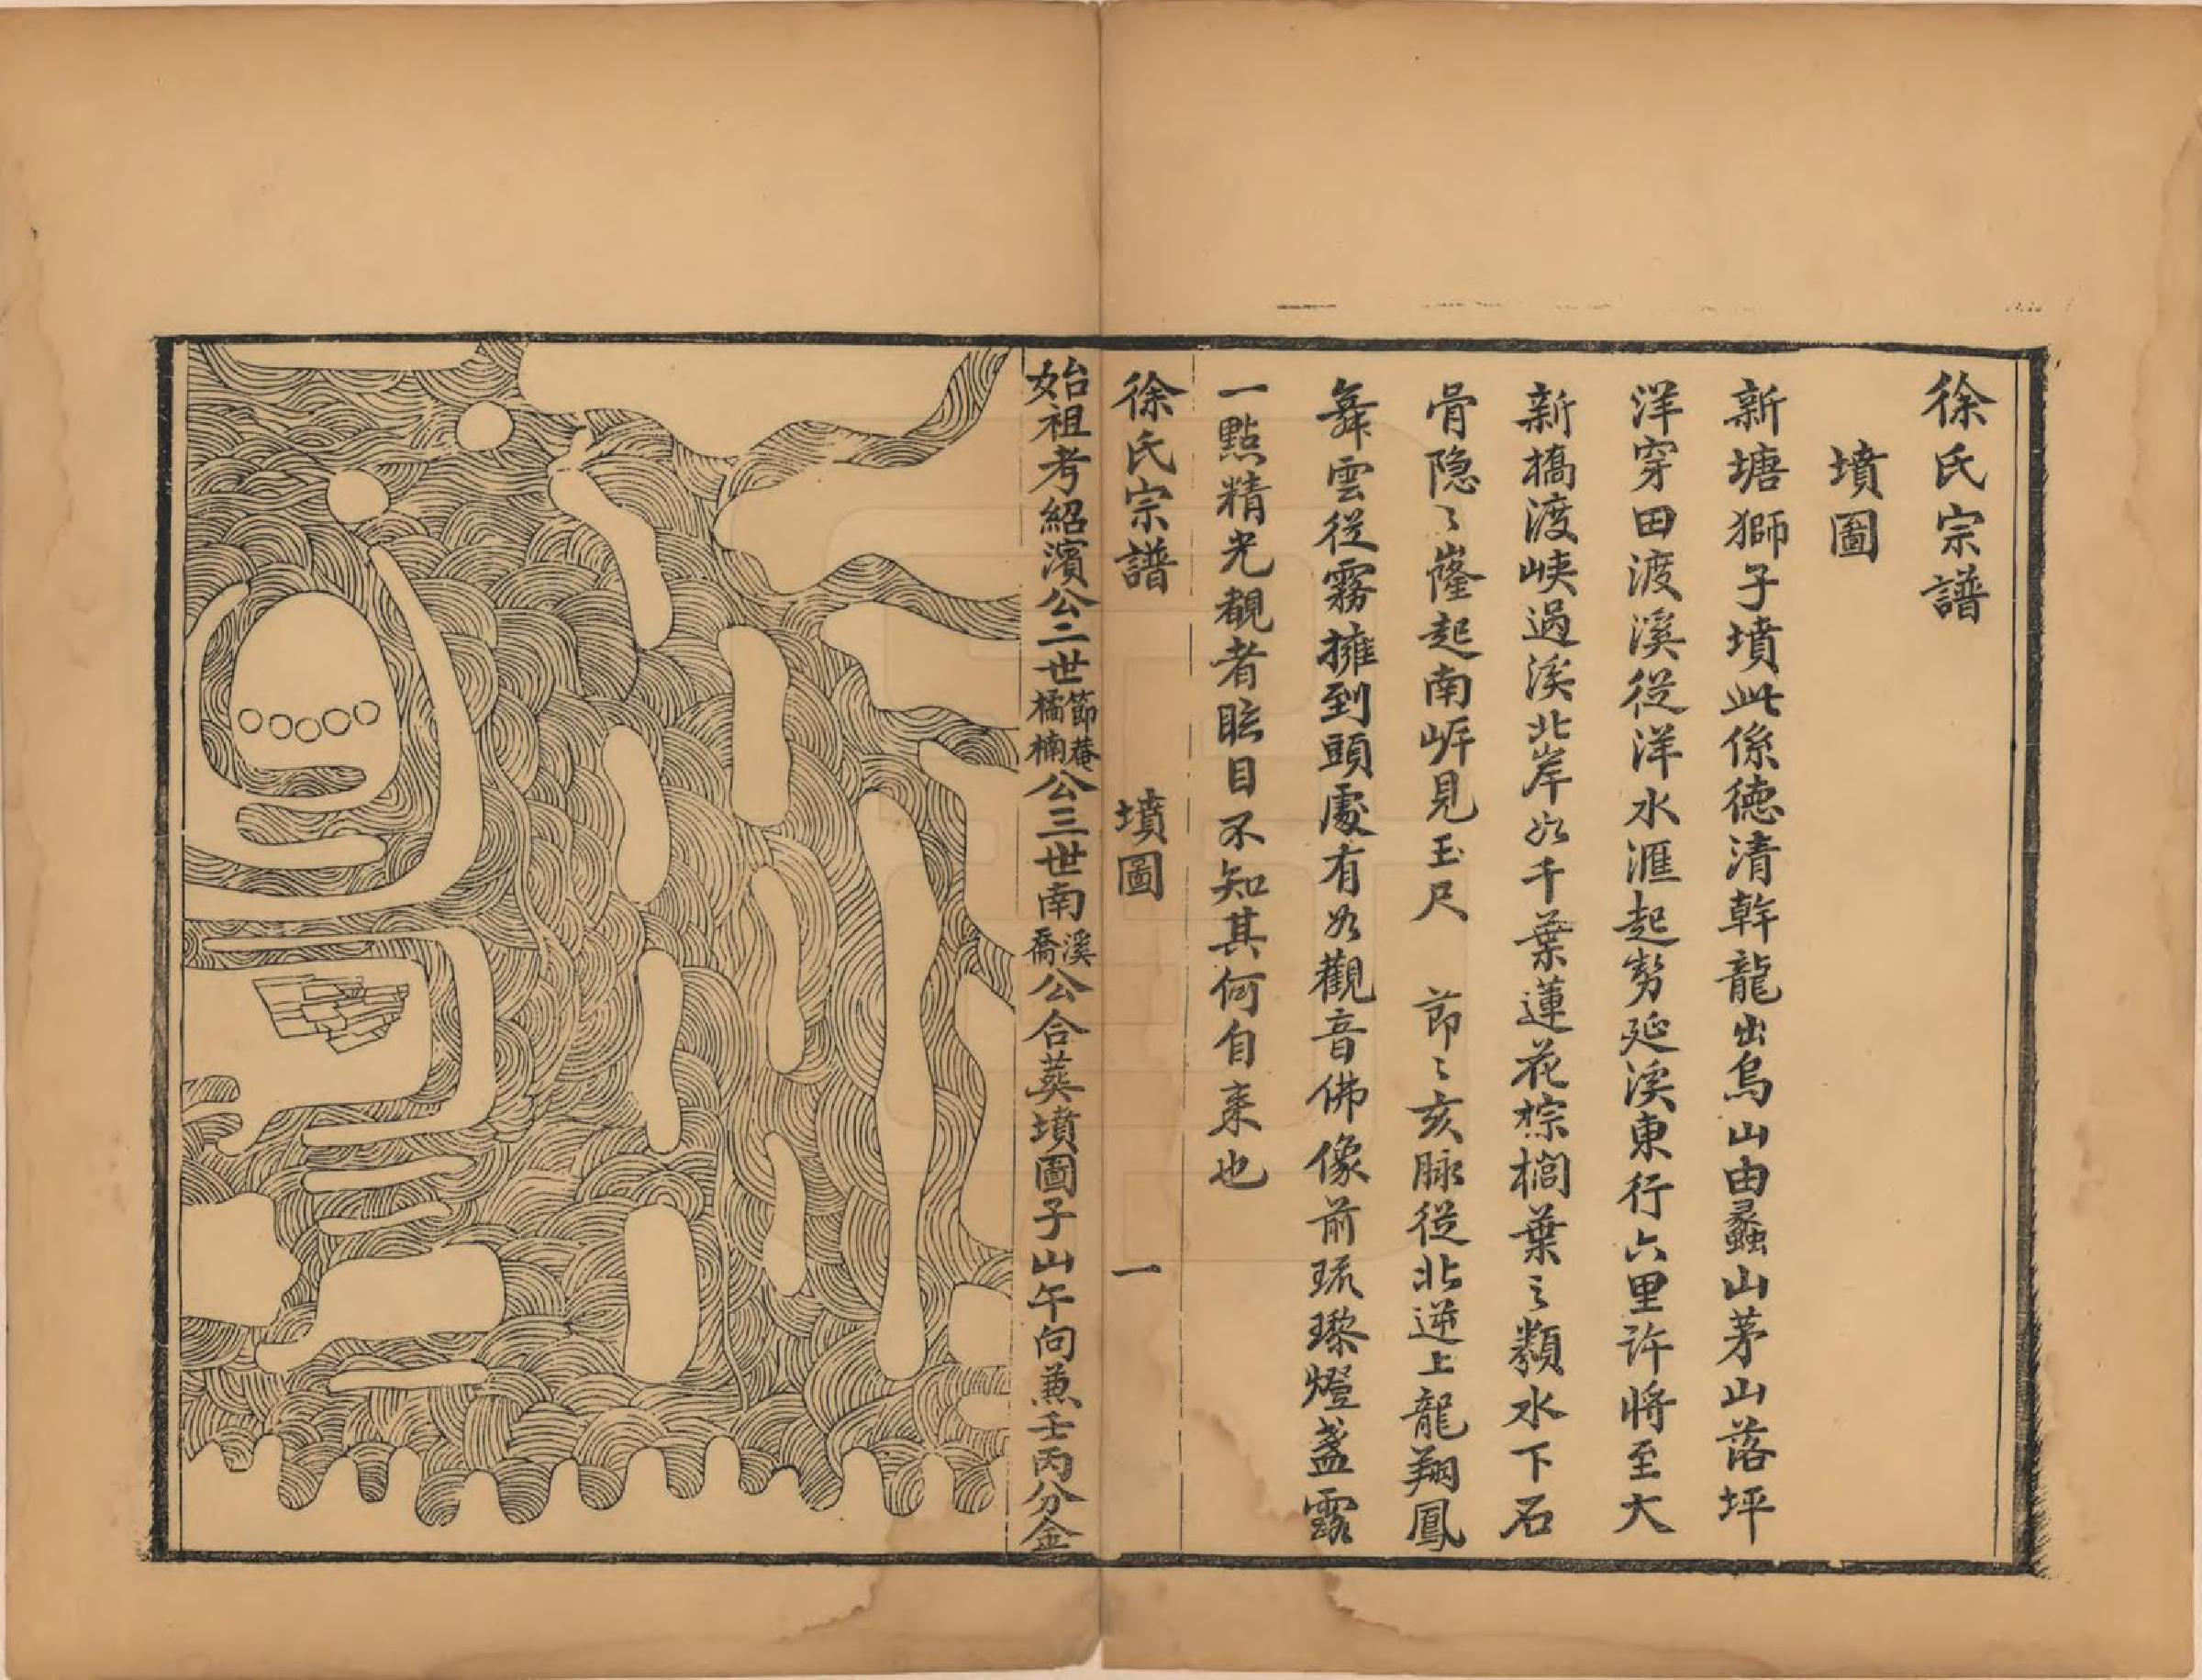 徐氏宗譜
墳圖
新塘獅子墳此係德清幹龍出烏山由蠡山茅山落坪
洋穿田渡溪從洋水滙起勢延溪東行六里許將至大
新橋渡峽過溪北岸如千葉蓮花棕櫚葉之類水下石
骨隐〻嶐起南岸見玉尺 節〻亥脉從北逆上龍翔鳳
舞雲從霧擁到頭處有如觀音佛像前琉璨燈盞露
一點精光覩者眩目不知其何自来也
徐氏宗譜 墳圖 一
始祖考紹濱公二世節菴橘楠公三世南溪喬公合葬墳圖子山午向兼壬丙分金